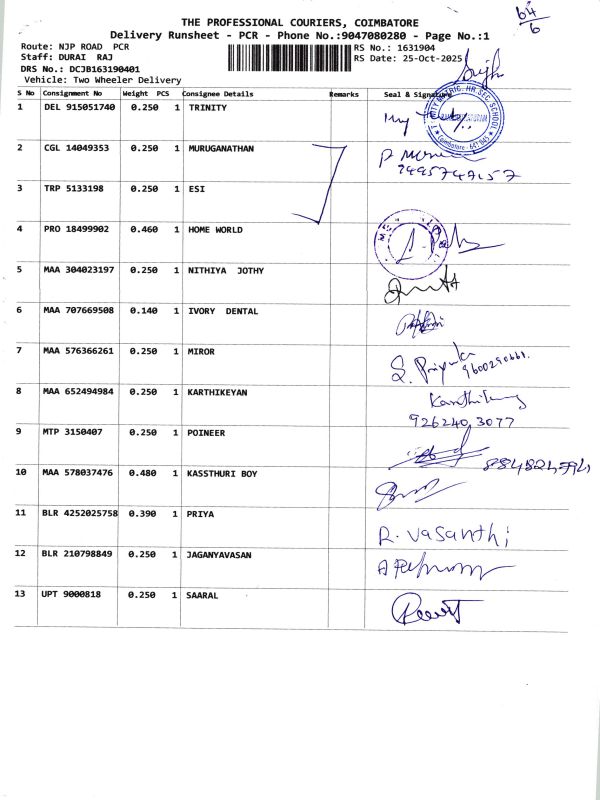 64
6
THE PROFESSIONAL COURIERS, COIMBATORE
Delivery Runsheet - PCR - Phone No.:9047080280 - Page No.:1
Route: NJP ROAD PCR
RS No.: 1631904
Staff: DURAI RAJ
RS Date: 25-Oct-2025
DRS No.: DCJB163190401
Vehicle: Two Wheeler Delivery
S No Consignment No Weight PCS Consignee Details Remarks Seal & Signature
1 DEL 915051740 0.250 1 TRINITY
2 CGL 14049353 0.250 1 MURUGANATHAN
3 TRP 5133198 0.250 1 ESI
4 PRO 18499902 0.460 1 HOME WORLD
5 MAA 304023197 0.250 1 NITHIYA JOTHY
6 MAA 707669508 0.140 1 IVORY DENTAL
7 MAA 576366261 0.250 1 MIROR
S. Priyanka
8 MAA 652494984 0.250 1 KARTHIKEYAN
926240 3077
9 MTP 3150407 0.250 1 POINEER
10 MAA 578037476 0.480 1 KASSTHURI BOY
11 BLR 4252025758 0.390 1 PRIYA
R. Vasanthi
12 BLR 210798849 0.250 1 JAGANYAVASAN
13 UPT 9000818 0.250 1 SAARAL